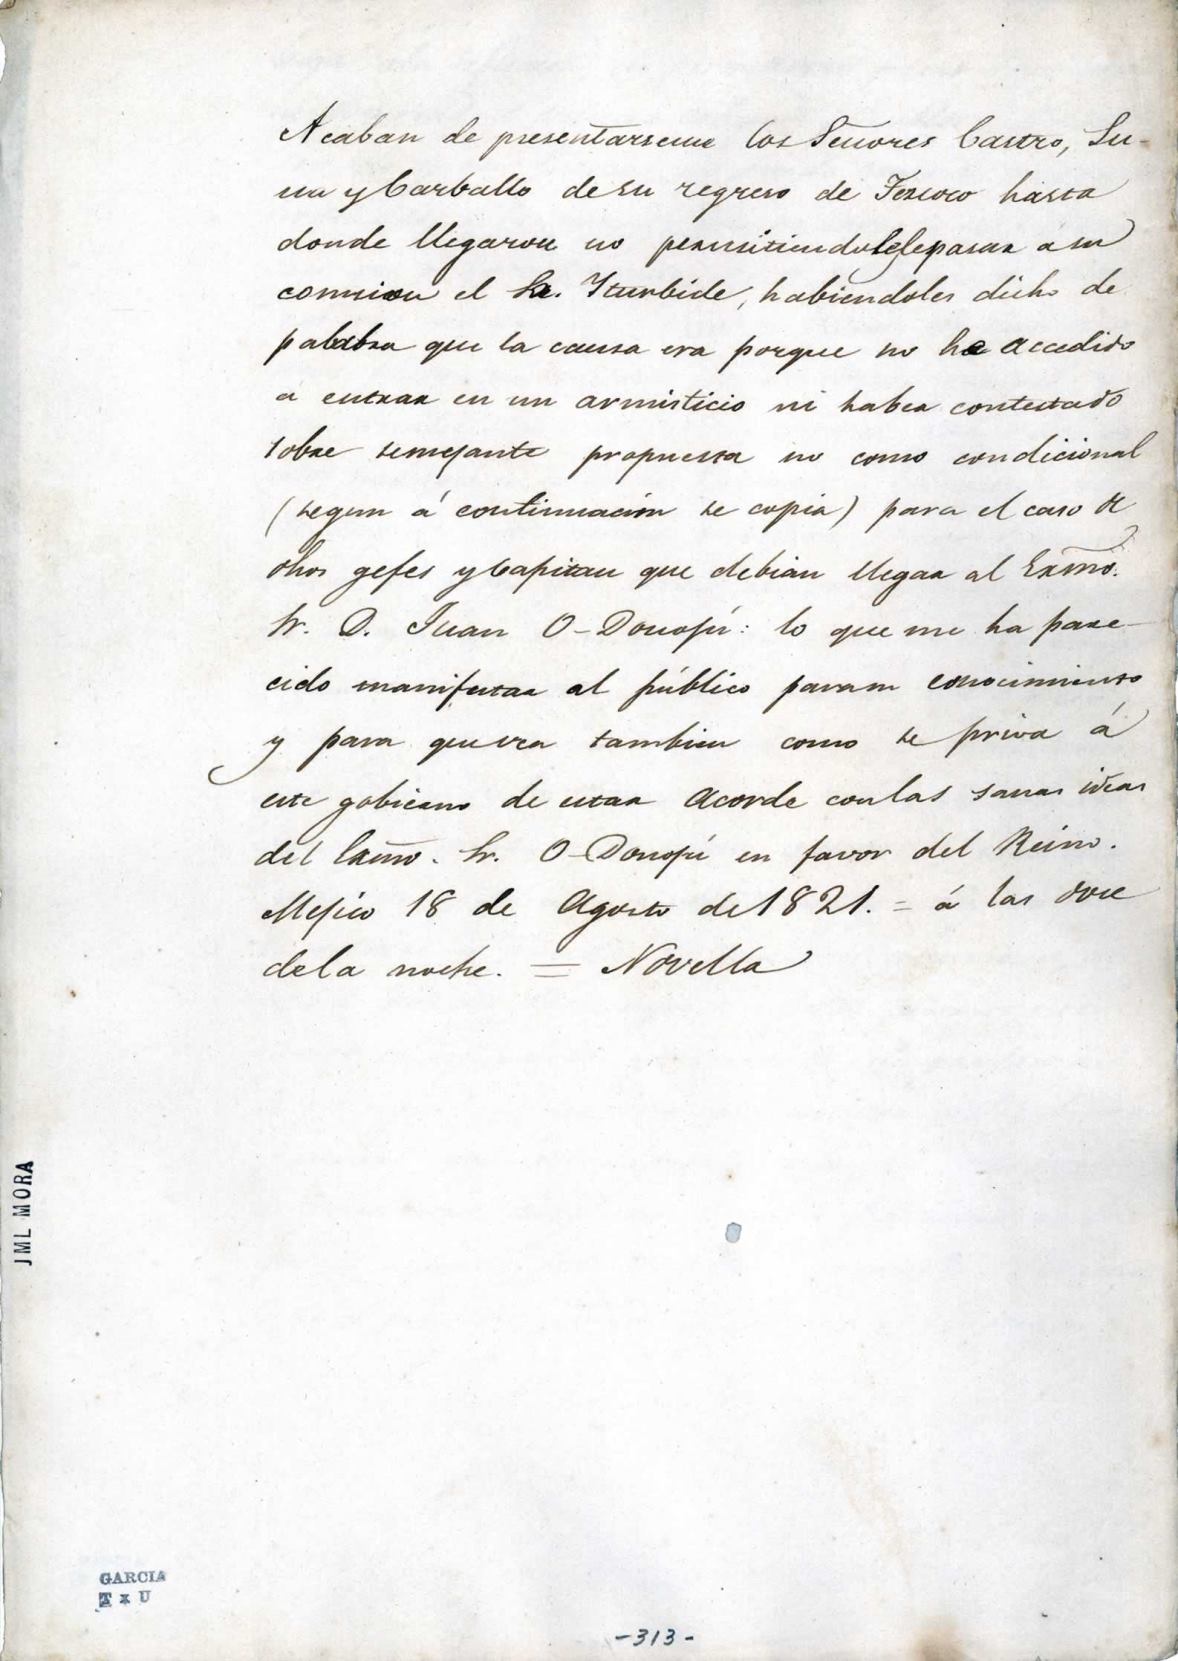 Acaban de presentarseme los Señores Castro, Lu-
na y Carballo de su regreso de Texcoco hasta
donde llegaron no permitiendoleles pasar a su
comision el Sr. Yturbide, habiendoles dicho de
palabra que la causa era porque no he accedido
a entrar en un armisticio ni haber contestado
sobre semejante propuesta no como condicional
(segun á continuación se copia) para el caso de
dhos gefes y Capitan que debian llegar al Exmo.
Sr. D. Juan O-Donojú: lo que me ha pare-
cido manifestar al público para su conocimiento
y para que vea tambien como se priva á
este gobierno de estar acorde con las sanas ideas
del Exmo. Sr. O-Donojú en favor del Reino.
Mejico 18 de Agosto de 1821. = á las doce
de la noche. = Novella
JML MORA
GARCIA
T x U
-313-